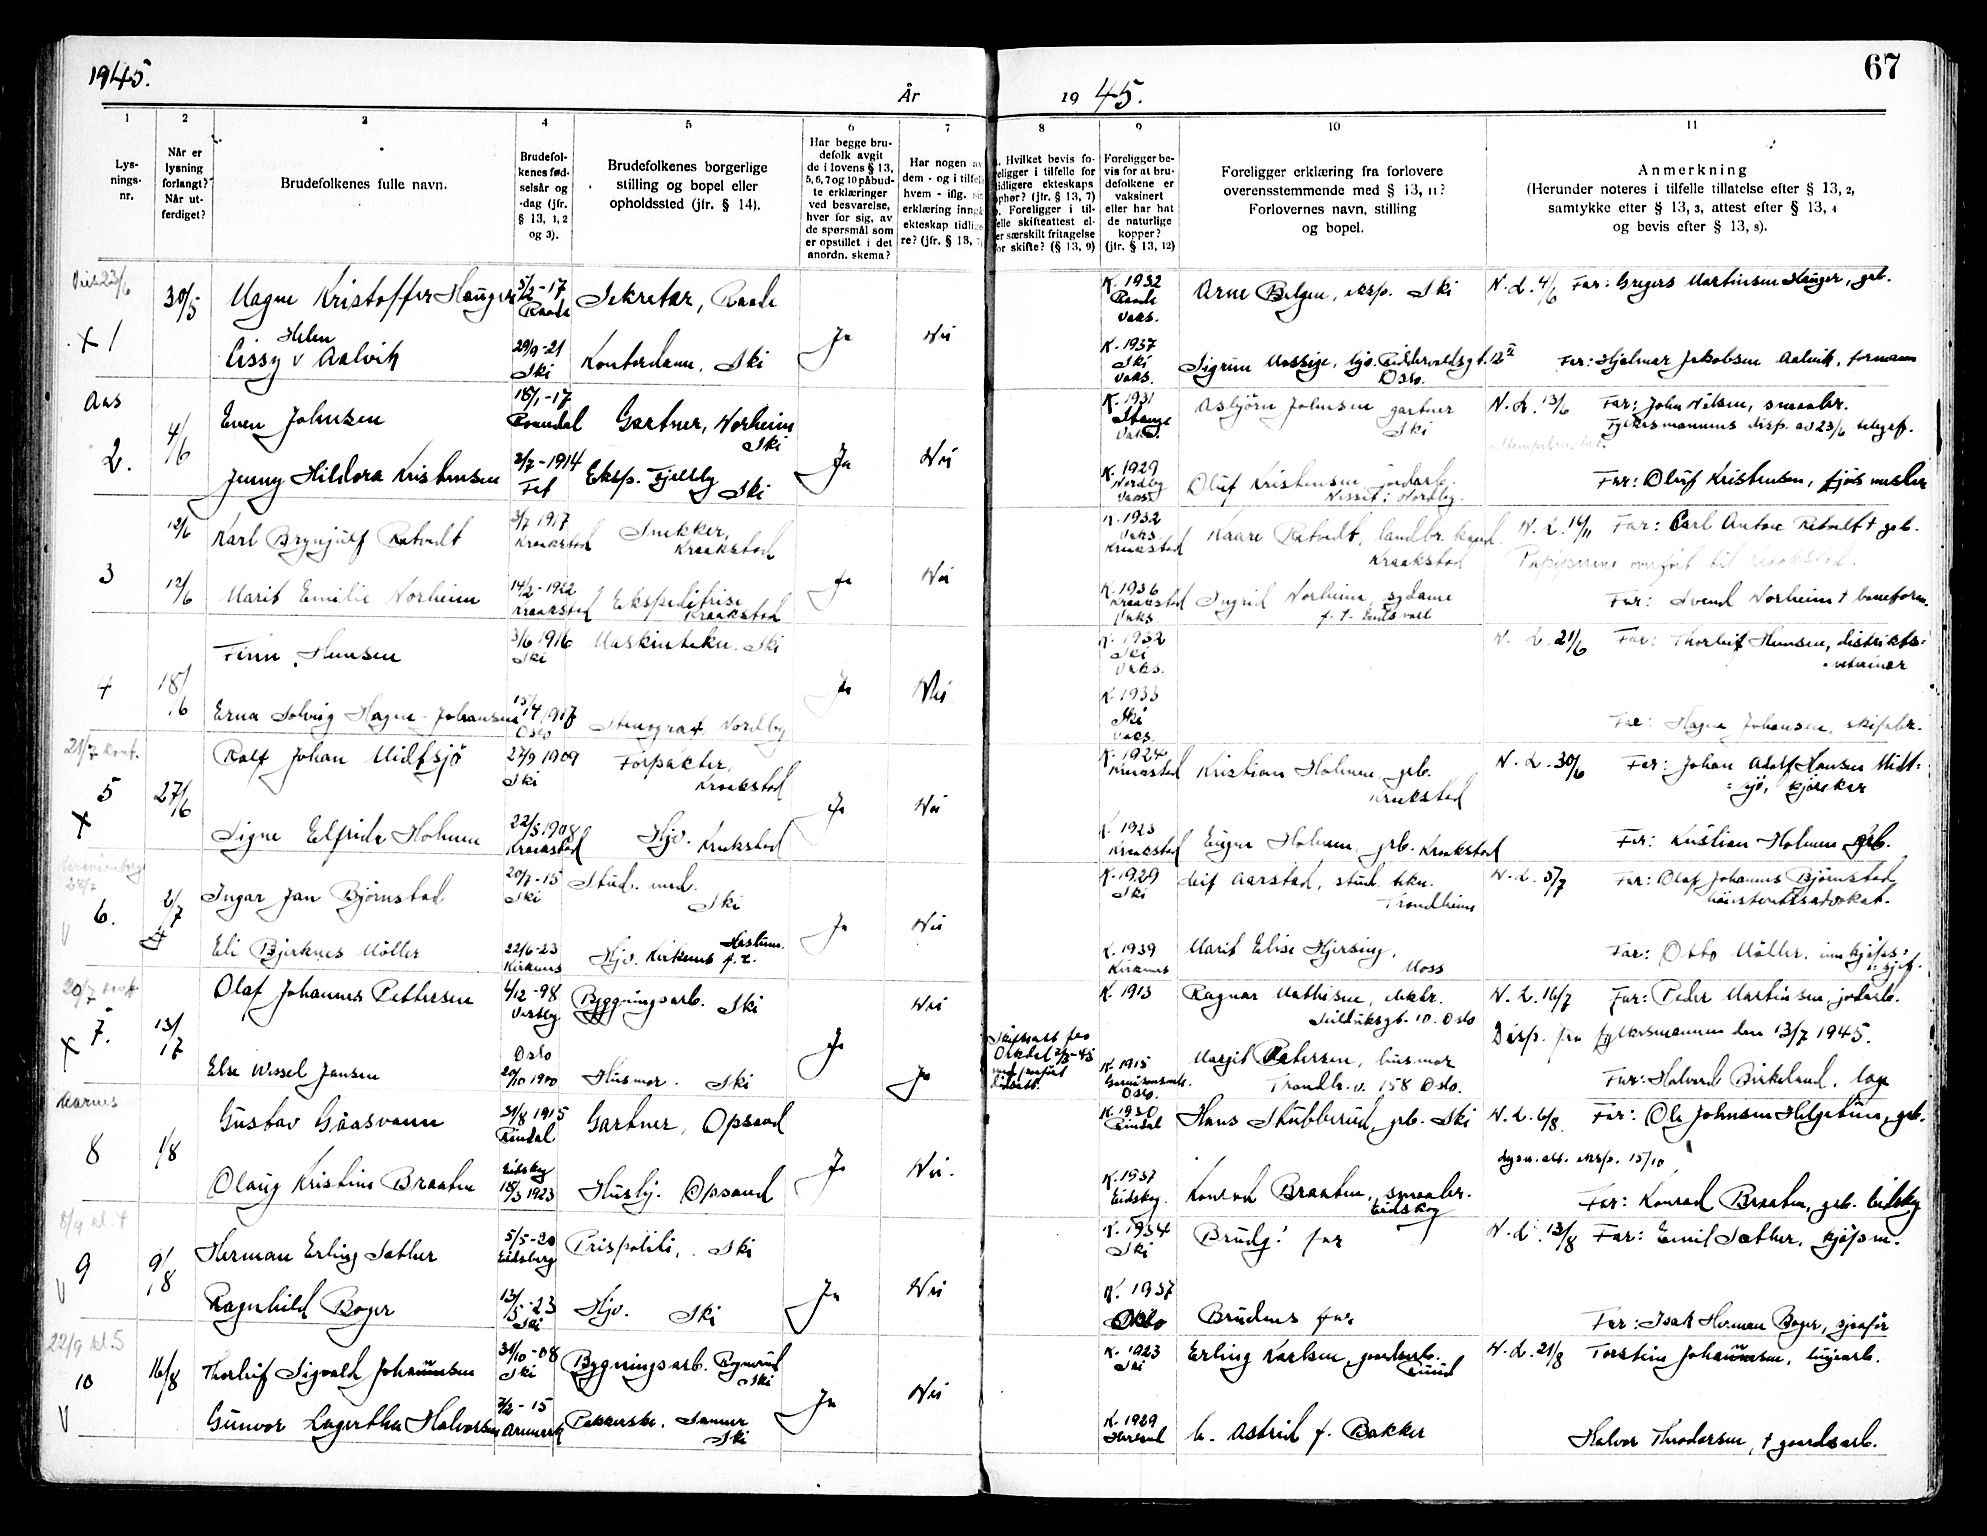 1945.
67
År
19 45.
1
2
3
4
5
6
7
8
9
10
11
Lys-
nings-
nr.
Når er
lysning
forlangt?
Når ut-
ferdiget?
Brudefolkenes fulle navn.
Brudefol-
kenes fød-
selsår og
-dag (jfr.
§ 13, 1, 2
og 3).
Brudefolkenes borgerlige
stilling og bopel eller
opholdssted (jfr. § 14).
Har begge bru-
defolk avgit
de i lovens § 13,
5, 6, 7 og 10 påbud-
te erklæringer
ved besvarelse,
hver for sig, av
de spørsmål som
er opstillet i det
anordn. skema?
Har nogen av
dem - og i tilfelle
hvem - iflg. sin
erklæring inngått
ekteskap tidlige-
re? (jfr. § 13, 7)
Hvilket bevis fo-
religger i tilfelle for
tidligere ekteskaps
ophør? (jfr. § 13, 7)
b. Foreligger i til-
felle skifteattest el-
ler særskilt fritagelse
for skifte? (§ 13, 9)
Foreligger be-
vis for at bru-
defolkene er
vaksinert
eller har hat
de naturlige
kopper?
(jfr. § 13, 12)
Foreligger erklæring fra forlovere
overensstemmende med § 13, 11?
Forlovernes navn, stilling
og bopel.
Anmerkning
(Herunder noteres i tilfelle tillatelse efter § 13, 2,
samtykke efter § 13, 3, attest efter § 13, 4
og bevis efter § 13, 8).
x 1
30/5
Magne Kristoffer Hauger
5/2-17
Raade
Sekretær, Raade
K. 1932
Raade
Vaks.
Arne Belgen, eksp. Ski
N. L. 4/6 Far: Gregers Martinsen Hauger, grb.
Helen
Cissy v Aalvik
29/9-21
Ski
Kontordame, Ski
Ja
Nei
K. 1937
Ski
Vaks.
Oslo.
Far: Hjalmar Jakobsen Aalvik, formann
Aas
2.
4/6
Even Johnsen
18/1-17
Gartner, Norheim
Ski
Ja
Nei
K. 1931
Stange
Vaks.
Asbjørn Johnsen gartner
Ski
N. L. 13/6 Far: John Nilsen, smaabr.
Fylkesmannens disp. av 23/6 telegr.
Jenny Hildora Kristensen
2/7-1914
Fet
Eksp. Fjellby
Ski
K. 1929
Nordby
Vaks.
Oluf Kristensen jordarb.
Nesset i Nordby.
Far: Oluf Kristensen, fjøsmester
3
12/6
Karl Brynjulf Ratvedt
3/7 1917
Kraakstad
Snekker,
Kraakstad
K. 1932
Vaks.
Kraakstad
Kaare Ratvedt, landbr. kand.
Kraakstad
N. L. 14/11 Far: Carl Anton Ratvedt † grb.
Papirerne overført til Kraakstad.
12/6
Marit Emilie Norheim
14/2-1922
Kraakstad
Ekspeditrise
Kraakstad
Ja
Nei
K. 1936
Kraakstad
Vaks
Ingrid Norheim, sydame
f. t. Eidsvoll
Far: Svend Norheim † baneform.
4
18/6
Finn Hansen
3/6 1916
Ski
Maskintekn. Ski
Ja
Nei
K. 1932
Ski
Vaks.
N. L. 21/6 Far: Thorleif Hansen, distrikts-
veterinær
Erna Solveig Hagne-Johansen
15/4 1917
Oslo
Stenograf Nordby
K. 1933
Ski
Vaks.
Far: Hagne Johansen, skipsbr.
21/7 kont.
5
x
27/6
Rolf Johan Midtsjø
27/9 1909
Ski
Forpakter,
Kraakstad
Ja
Nei
K. 1924
Kraakstad
Kristian Holmen, grb.
Kraakstad
N. L. 30/6 Far: Johan Adolf Hansen Midt-
sjø, kjøreker
Signe Elfrida Holmen
22/5 1908
Kraakstad
Hjv. Kraakstad
K. 1923
Kraakstad
Eugen Holmen, grb. Kraakstad
Far: Kristian Holmen grb.
6.
2/7
Ingar Jan Bjørnstad
20/7-15
Ski
Stud. med.
Ski
Ja
Nei
K. 1929
Ski
Leif Aarstad, stud. tekn.
Trondheim
N. L. 5/7 Far: Olaf Johannes Bjørnstad
høiesterettsadvokat.
Eli Bjerknes Møller
22/6-23
Kirkenes
Hjv. Kirkenes f. t.
K. 1939
Kirkenes
Marit Elise Hjersing,
Moss
Far: Otto Møller, innkjøps-
sjef.
20/7
x 7.
13/7
Olaf Johannes Pettersen
4/12-98
Vestby
Bygningsarb. Ski
Ja
Nei
K. 1913
Ragnar Mathisen, elektr.
10. Oslo
N. L. 16/7 Far: Peder Martinsen, jordarb.
Disp. fra fylkesmannen den 13/7 1945.
Else Wessel Jansen
Oslo
20/10 1900
Husmor. Ski
Ja
Skifteatt fra
K. 1915
Oslo.
Margit Petersen, husmor
Trondh.v. 158 Oslo.
Far: Halvard Birkeland, læge
8
1/8
Gustav Gåasvann
31/8 1915
Rindal
Gartner, Opsand
Ja
Nei.
K. 1930
Rindal
Hans Stubberud, grb. Ski
N. L. 6/8 Far: Ole Johnsen Helgetun, grb.
Lysn. att. eksp. 15/10
Olaug Kristine Braaten
Eidskog
18/3 1923
Hushj. Opsand
K. 1937
Eidskog.
Konrad Braaten, smaabr.
Eidskog
Far: Konrad Braaten, grb. Eidskog
8/9 kl. 4
9
9/8
Herman Erling Sæther
5/5-20
Eidsberg
Prispoliti, Ski
Ja
Nei
K. 1934
Ski
Brudg. far
N. L. 13/8 Far: Emil Sæther, kjøpm.
Ragnhild Boger
13/5-23
Ski
Hjv. Ski
K. 1937
Oslo
Brudens far
Far: Isak Herman Boger, sjåfør
22/9 kl. 5
10
16/8
Thorleif Sigvald Johannesen
31/10-08
Ski
Bygningsarb.
Ski
Ja
Nei
K. 1923
Ski
Erling Karlsen, gaardsarb.
Ruud
N. L. 21/8 Torstein Johannesen, bygarb.
Gunvor Lagertha Halvorsen
7/2-15
Aremark
Pakkerske. Sanner
Ski
K. 1929
b. Astrid f. Bakker
Halvor Theodorsen, † gaardsarb.